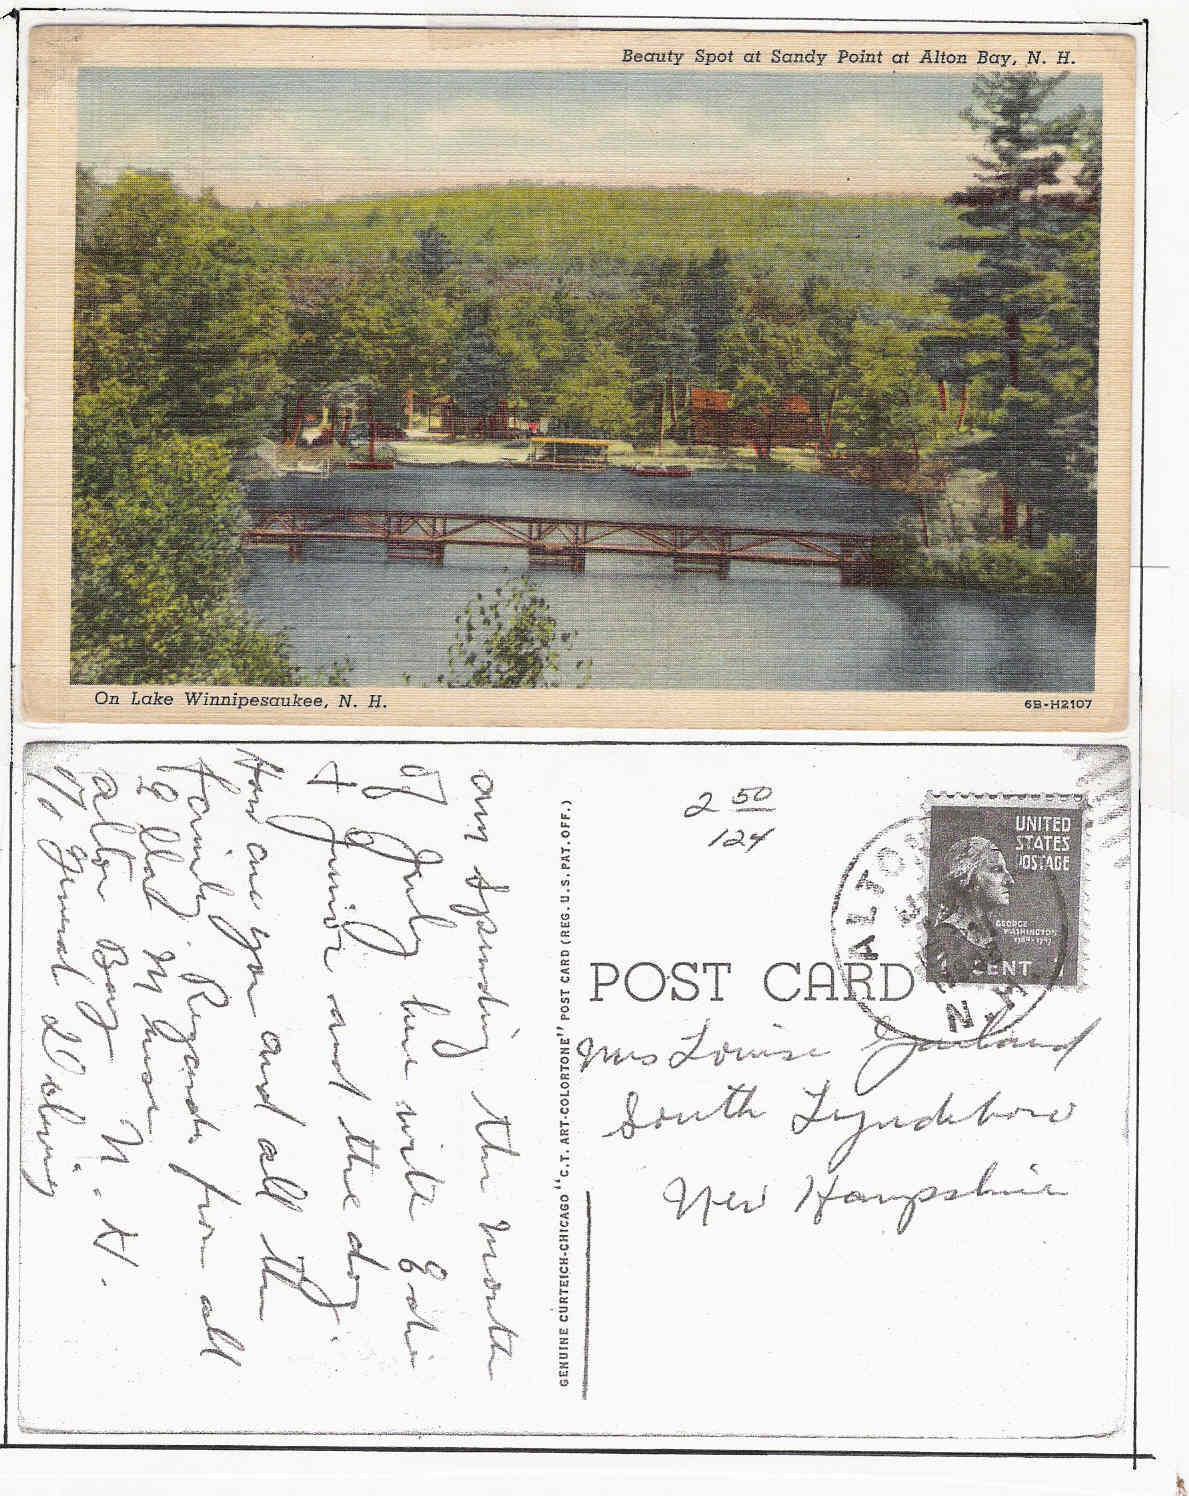 Beauty Spot at Sandy Point at Alton Bay, N. H.
On Lake Winnipesaukee, N. H.
6B-H2107
am spending the month
of July here with Edie
& Junior and the dog.
How are you and all the
family. Regards from all
Ella M
Alton Bay N.H.
% General Delivery
GENUINE CURTEICH-CHICAGO "C.T. ART-COLORTONE" POST CARD (REG. U.S. PAT. OFF.)
2 50
124
UNITED
STATES
POSTAGE
GEORGE
WASHINGTON
1789-1797
1 CENT 1
ALTON
N.H.
POST CARD
Mrs Louise Garland
South Lyndeboro
New Hampshire